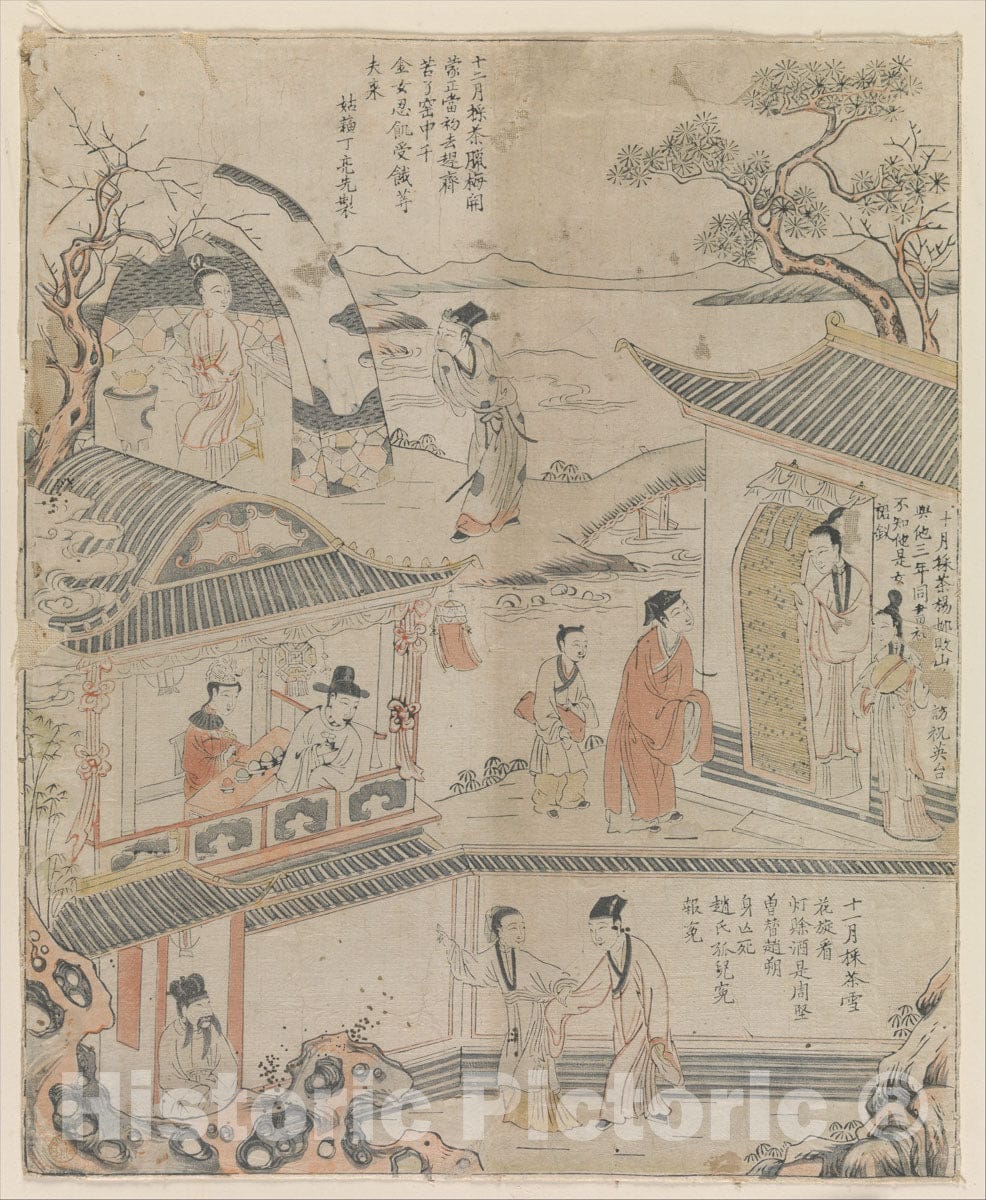 十二月採茶臘梅開
蒙正當初去趕齋
苦了窑中千
金女忍飢受餓等
夫來
姑蘓丁亮先製
十月採茶楊
與他三年同
不知他是女
裙釵
訪祝英台
十一月採茶雪
花旋看
灯賖酒是周堅
曾替趙朔
身亡死
趙氏孤兒寃
報寃
Historic Pictoric ®